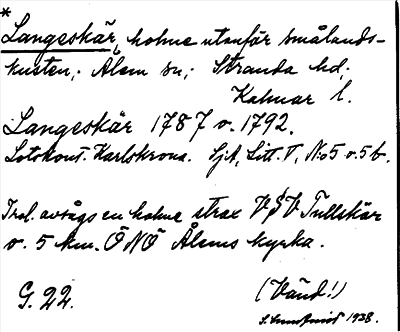 *
Langeskär, holme utanför smålands-
kusten; Ålem sn; Stranda hd;
Kalmar l.
Langeskär 1787 o. 1792.
Sjökrt. Litt. V, N:o 5 o. 5 b.
Trol. avsågs en holme strax VSV Tullskär
o. 5 km. ÖNÖ Ålems kyrka.
G. 22. (Vänd!)
1938.